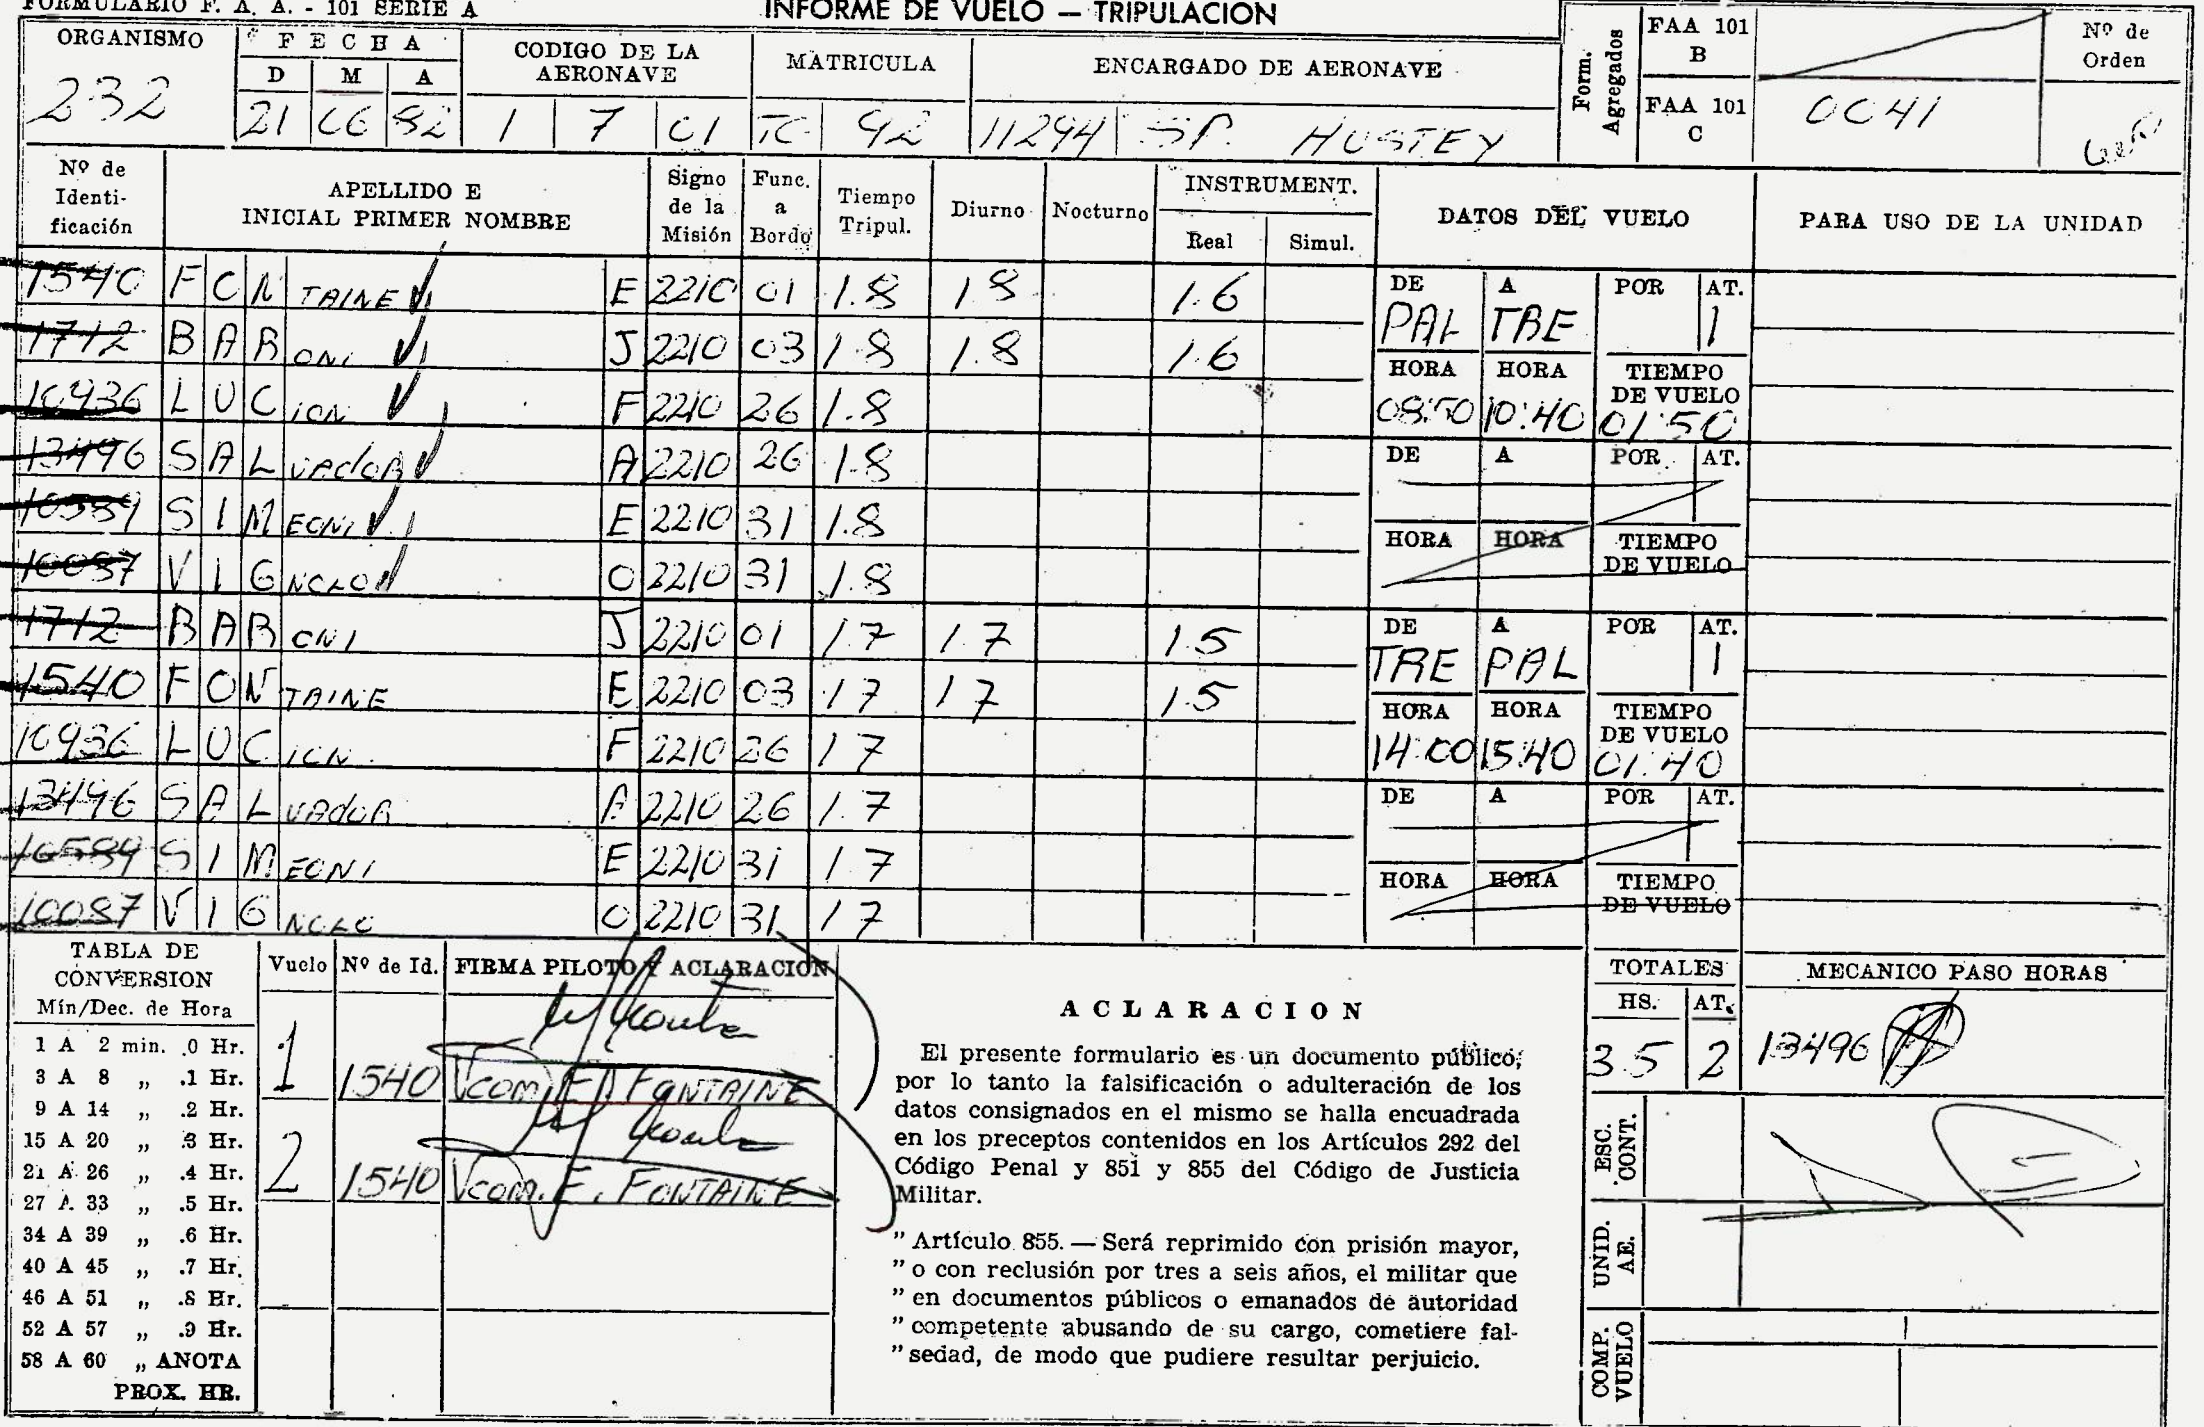 FORMULARIO F. A. A. - 101 SERIE A
INFORME DE VUELO — TRIPULACION
ORGANISMO
232
FECHA
D M A
21 06 82
CODIGO DE LA AERONAVE
1 7 01
MATRICULA
TC 92
ENCARGADO DE AERONAVE
11294 SP. HUSTEY
Form. Agregados
FAA 101 B
FAA 101 C
0041
Nº de Orden
Nº de Identificación
APELLIDO E INICIAL PRIMER NOMBRE
Signo de la Misión
Func. a Bordo
Tiempo Tripul.
Diurno
Nocturno
INSTRUMENT.
Real Simul.
DATOS DEL VUELO
PARA USO DE LA UNIDAD
1540 FONTAINE E 2210 01 1.8 1.8 1.6
1712 BARONI J 2210 03 1.8 1.8 1.6
10936 LUCION F 2210 26 1.8
13496 SALVADOR A 2210 26 1.8
10589 SIMEONI E 2210 31 1.8
10087 VIGNOLO O 2210 31 1.8
1712 BARONI J 2210 01 1.7 1.7 1.5
1540 FONTAINE E 2210 03 1.7 1.7 1.5
10936 LUCION F 2210 26 1.7
13496 SALVADOR A 2210 26 1.7
10589 SIMEONI E 2210 31 1.7
10087 VIGNOLO O 2210 31 1.7
DE A POR AT.
PAL TRE 1
HORA HORA TIEMPO DE VUELO
08:50 10:40 01:50
DE A POR AT.
HORA HORA TIEMPO DE VUELO
DE A POR AT.
TRE PAL 1
HORA HORA TIEMPO DE VUELO
14:00 15:40 01:40
DE A POR AT.
HORA HORA TIEMPO DE VUELO
TABLA DE CONVERSION
Mín/Dec. de Hora
1 A 2 min. .0 Hr.
3 A 8 „ .1 Hr.
9 A 14 „ .2 Hr.
15 A 20 „ .3 Hr.
21 A 26 „ .4 Hr.
27 A 33 „ .5 Hr.
34 A 39 „ .6 Hr.
40 A 45 „ .7 Hr.
46 A 51 „ .8 Hr.
52 A 57 „ .9 Hr.
58 A 60 „ ANOTA
PROX. HR.
Vuelo Nº de Id. FIRMA PILOTO Y ACLARACION
1 1540 Vcom. E. FONTAINE
2 1540 Vcom. E. FONTAINE
ACLARACION
El presente formulario es un documento público;
por lo tanto la falsificación o adulteración de los
datos consignados en el mismo se halla encuadrada
en los preceptos contenidos en los Artículos 292 del
Código Penal y 851 y 855 del Código de Justicia
Militar.
" Artículo 855. — Será reprimido con prisión mayor,
" o con reclusión por tres a seis años, el militar que
" en documentos públicos o emanados de autoridad
" competente abusando de su cargo, cometiere fal-
" sedad, de modo que pudiere resultar perjuicio.
TOTALES
HS. AT.
3.5 2
MECANICO PASO HORAS
13496
ESC. CONT.
UNID. AE.
COMP. VUELO